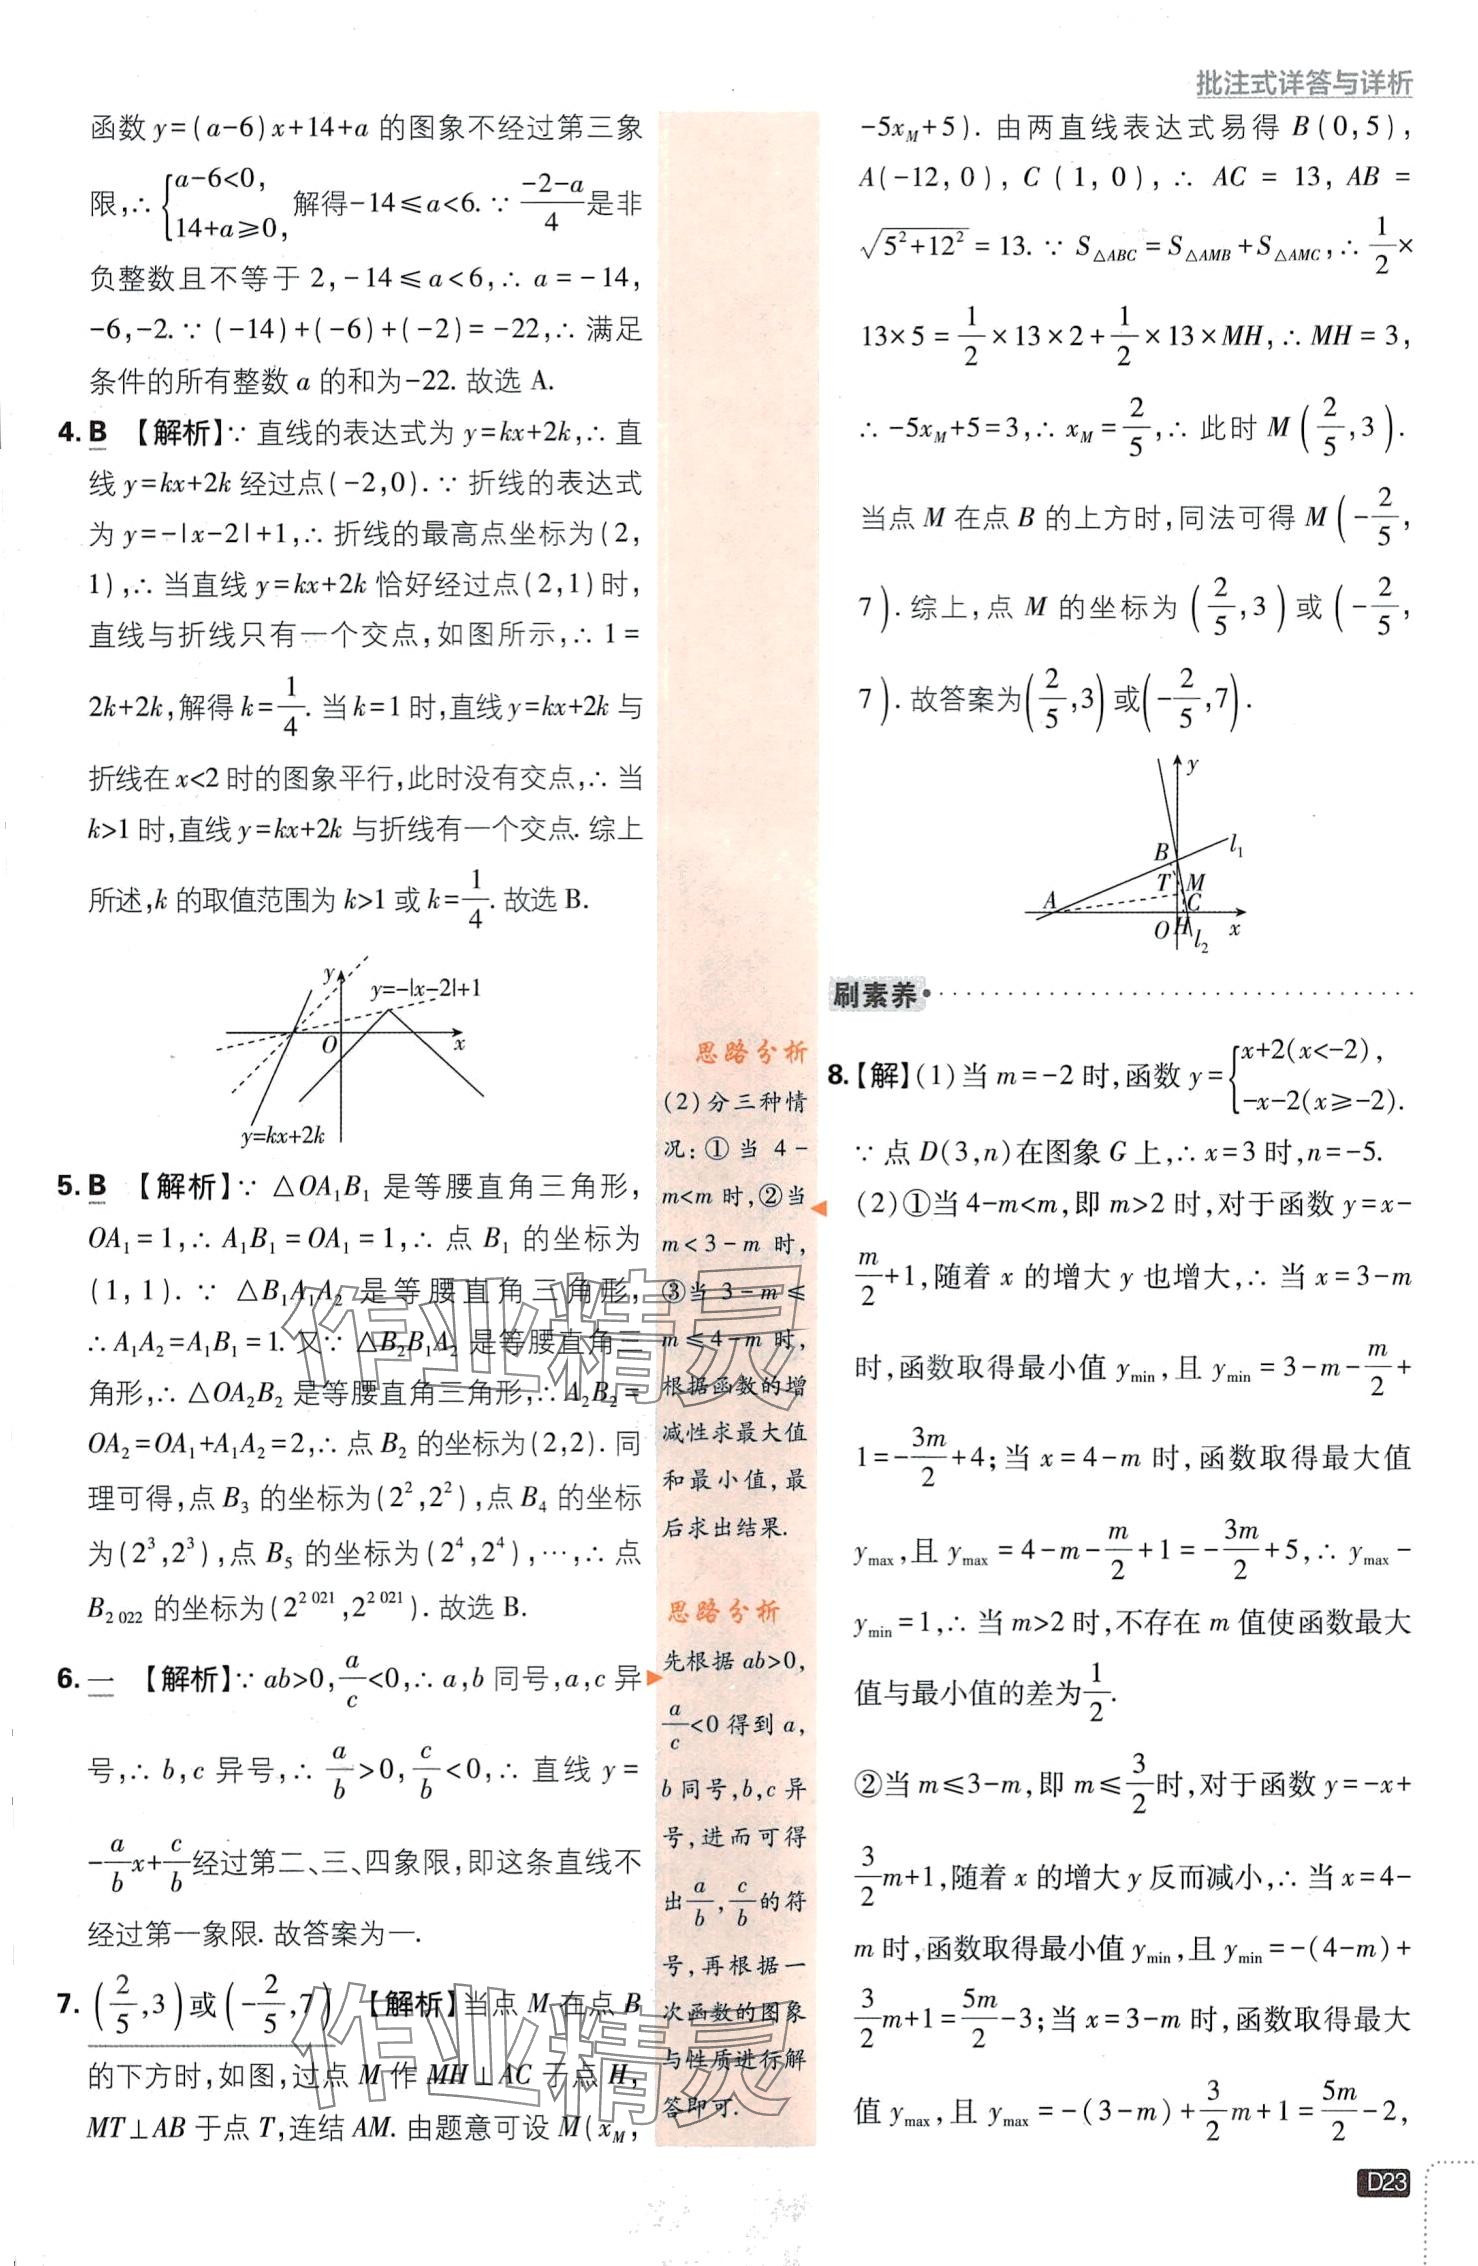 批注式详答与详析
函数 y=(a-6)x+14+a 的图象不经过第三象
限,∴ {a-6<0, 14+a≥0, 解得-14≤a<6. ∵ (-2-a)/4 是非
负整数且不等于 2,-14≤a<6,∴ a=-14,
-6,-2. ∵ (-14)+(-6)+(-2)=-22,∴ 满足
条件的所有整数 a 的和为-22. 故选 A.
4. B 【解析】∵ 直线的表达式为 y=kx+2k,∴ 直
线 y=kx+2k 经过点(-2,0). ∵ 折线的表达式
为 y=-|x-2|+1,∴ 折线的最高点坐标为(2,
1),∴ 当直线 y=kx+2k 恰好经过点(2,1)时,
直线与折线只有一个交点,如图所示,∴ 1=
2k+2k,解得 k=1/4. 当 k=1 时,直线 y=kx+2k 与
折线在 x<2 时的图象平行,此时没有交点,∴ 当
k>1 时,直线 y=kx+2k 与折线有一个交点. 综上
所述,k 的取值范围为 k>1 或 k=1/4. 故选 B.
y
y=-|x-2|+1
O
x
y=kx+2k
5. B 【解析】∵ △OA₁B₁ 是等腰直角三角形,
OA₁=1,∴ A₁B₁=OA₁=1,∴ 点 B₁ 的坐标为
(1,1). ∵ △B₁A₁A₂ 是等腰直角三角形,
∴ A₁A₂=A₁B₁=1. 又∵ △B₂B₁A₂ 是等腰直角三
角形,∴ △OA₂B₂ 是等腰直角三角形,∴ A₂B₂=
OA₂=OA₁+A₁A₂=2,∴ 点 B₂ 的坐标为(2,2). 同
理可得,点 B₃ 的坐标为(2²,2²),点 B₄ 的坐标
为(2³,2³),点 B₅ 的坐标为(2⁴,2⁴),…,∴ 点
B₂ ₀₂₂ 的坐标为(2² ⁰²¹,2² ⁰²¹). 故选 B.
6. 一 【解析】∵ ab>0,a/c<0,∴ a,b 同号,a,c 异
号,∴ b,c 异号,∴ a/b>0,c/b<0,∴ 直线 y=
-a/b x+c/b 经过第二、三、四象限,即这条直线不
经过第一象限. 故答案为一.
7. (2/5,3)或(-2/5,7) 【解析】当点 M 在点 B
的下方时,如图,过点 M 作 MH⊥AC 于点 H,
MT⊥AB 于点 T,连结 AM. 由题意可设 M(x_M,
思路分析
(2)分三种情
况:①当 4-
m<m 时,②当
m<3-m 时,
③当 3-m≤
m≤4-m 时,
根据函数的增
减性求最大值
和最小值,最
后求出结果.
思路分析
先根据 ab>0,
a/c<0 得到 a,
b 同号,b,c 异
号,进而可得
出 a/b,c/b 的符
号,再根据一
次函数的图象
与性质进行解
答即可.
-5x_M+5). 由两直线表达式易得 B(0,5),
A(-12,0),C(1,0),∴ AC=13,AB=
√(5²+12²)=13. ∵ S△ABC=S△AMB+S△AMC,∴ 1/2×
13×5=1/2×13×2+1/2×13×MH,∴ MH=3,
∴ -5x_M+5=3,∴ x_M=2/5,∴ 此时 M(2/5,3).
当点 M 在点 B 的上方时,同法可得 M(-2/5,
7). 综上,点 M 的坐标为(2/5,3)或(-2/5,
7). 故答案为(2/5,3)或(-2/5,7).
y
B
l₁
T
M
A
C
O
H
l₂
x
刷素养
8. 【解】(1)当 m=-2 时,函数 y={x+2(x<-2), -x-2(x≥-2).
∵ 点 D(3,n)在图象 G 上,∴ x=3 时,n=-5.
(2)①当 4-m<m,即 m>2 时,对于函数 y=x-
m/2+1,随着 x 的增大 y 也增大,∴ 当 x=3-m
时,函数取得最小值 y_min,且 y_min=3-m-m/2+
1=-3m/2+4;当 x=4-m 时,函数取得最大值
y_max,且 y_max=4-m-m/2+1=-3m/2+5,∴ y_max-
y_min=1,∴ 当 m>2 时,不存在 m 值使函数最大
值与最小值的差为1/2.
②当 m≤3-m,即 m≤3/2时,对于函数 y=-x+
3/2 m+1,随着 x 的增大 y 反而减小,∴ 当 x=4-
m 时,函数取得最小值 y_min,且 y_min=-(4-m)+
3/2 m+1=5m/2-3;当 x=3-m 时,函数取得最大
值 y_max,且 y_max=-(3-m)+3/2 m+1=5m/2-2,
D23
作业精灵
作业精灵